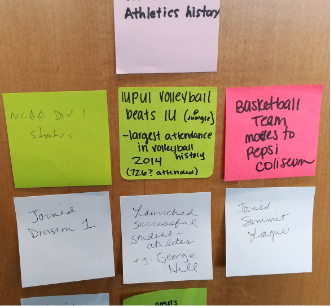 Athletics history
NCAA DIV 1
Status
IUPUI Volleyball
beats IU (@ Jungle)
-largest attendance
in volleyball
history
2014
(726? attended)
Basketball
Team
moves to
Pepsi
Coliseum
Joined
Division 1.
Launched
successful
student-
athletes
e.g. George
Hill
Joined
Summit
League